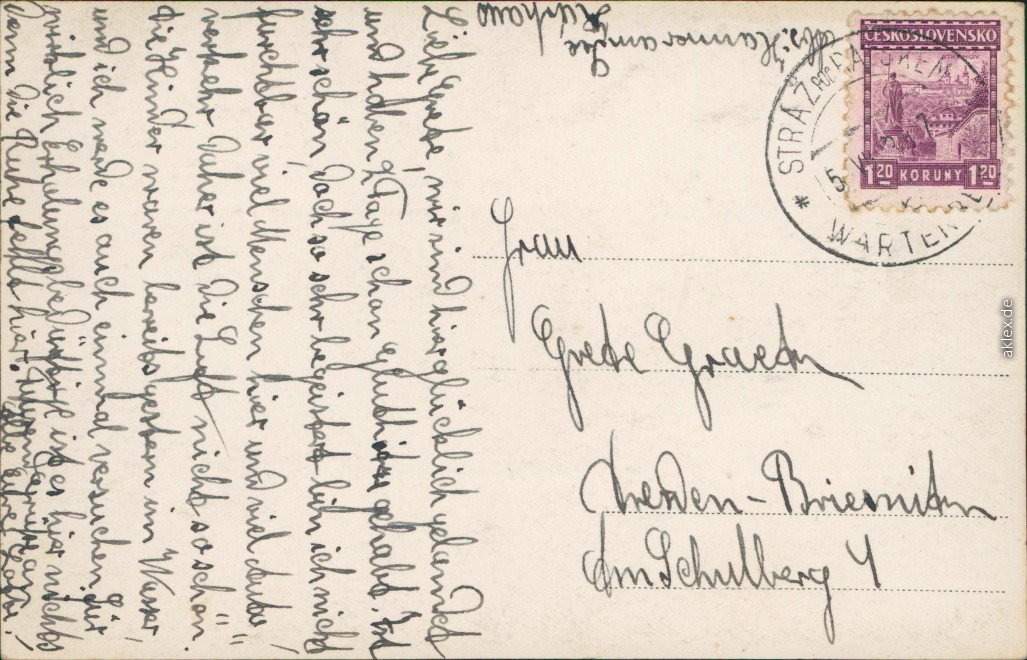 Liebe Grete, wir sind hier glücklich gelandet
und haben 2 Tage schon gehabt. Ist
sehr schön, doch so sehr begeistert bin ich nicht
furchtbar viel Menschen hier und viel Auto=
verkehr daher ist die Luft nicht so schön.
die Kinder waren bereits gestern im Wasser
und ich werde es auch einmal versuchen. Für
wirklich Erholungsbedürftige ist es hier nichts
denn die Ruhe fehlt hier.
Abs: Hammer am See
Kurhaus
ČESKOSLOVENSKO
1.20 KORUNY 1.20
* STRÁŽ POD RALSKEM
WARTEN
Frau
Grete
Dresden-Briesnitz
Am Schulberg 4
aklex.de